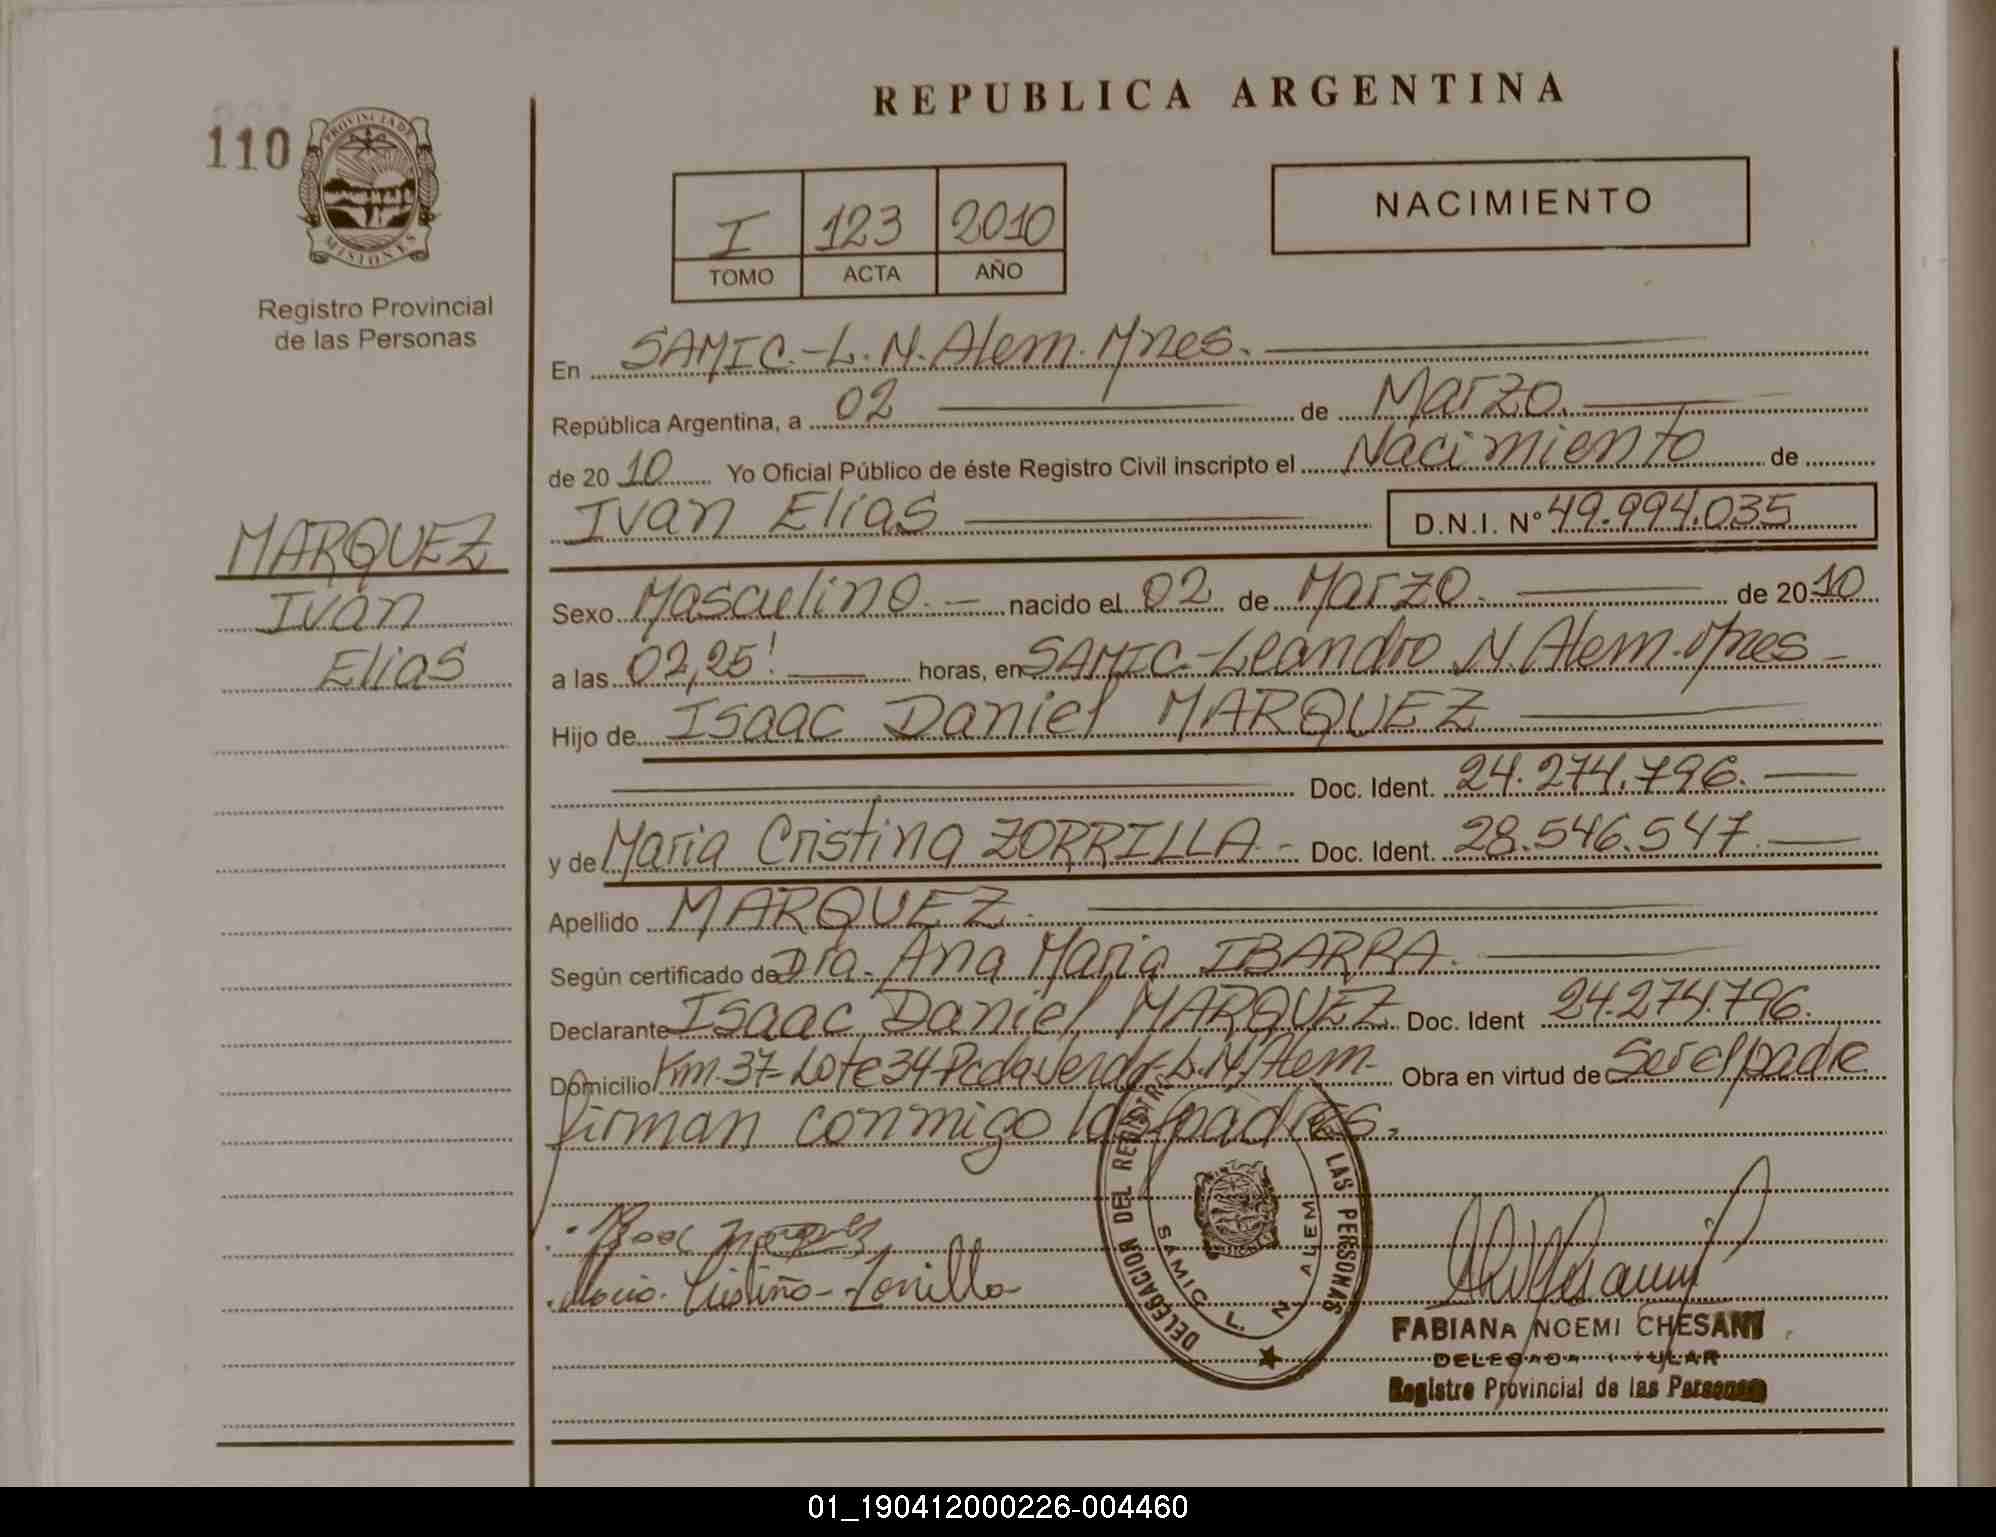 REPUBLICA ARGENTINA
110
PROVINCIA DE
MISIONES
Registro Provincial
de las Personas
I 123 2010
TOMO ACTA AÑO
NACIMIENTO
En SAMIC.-L.N.Alem.Mnes.
República Argentina, a 02 de Marzo.
de 2010 Yo Oficial Público de éste Registro Civil inscripto el Nacimiento de
Ivan Elias D.N.I. N° 49.994.035
MARQUEZ
Ivan
Elias
Sexo Masculino.- nacido el 02 de Marzo. de 2010
a las 02,25' horas, en SAMIC.-Leandro N.Alem.Mnes-
Hijo de Isaac Daniel MARQUEZ
Doc. Ident. 24.274.796.
y de Maria Cristina ZORRILLA.- Doc. Ident. 28.546.547.
Apellido MARQUEZ.
Según certificado de Dra. Ana Maria IBARRA.
Declarante Isaac Daniel MARQUEZ Doc. Ident 24.274.796.
Domicilio Km.37-Lote 34-Pcda Verde-L.N.Alem- Obra en virtud de Ser el padre
firman conmigo los padres.
Isaac Marquez
Maria Cristina Zorrilla
DELEGACION DEL REGISTRO DE LAS PERSONAS
SAMIC L. N. ALEM
FABIANA NOEMI CHESANI
DELEGADA TITULAR
Registro Provincial de las Personas
01_190412000226-004460